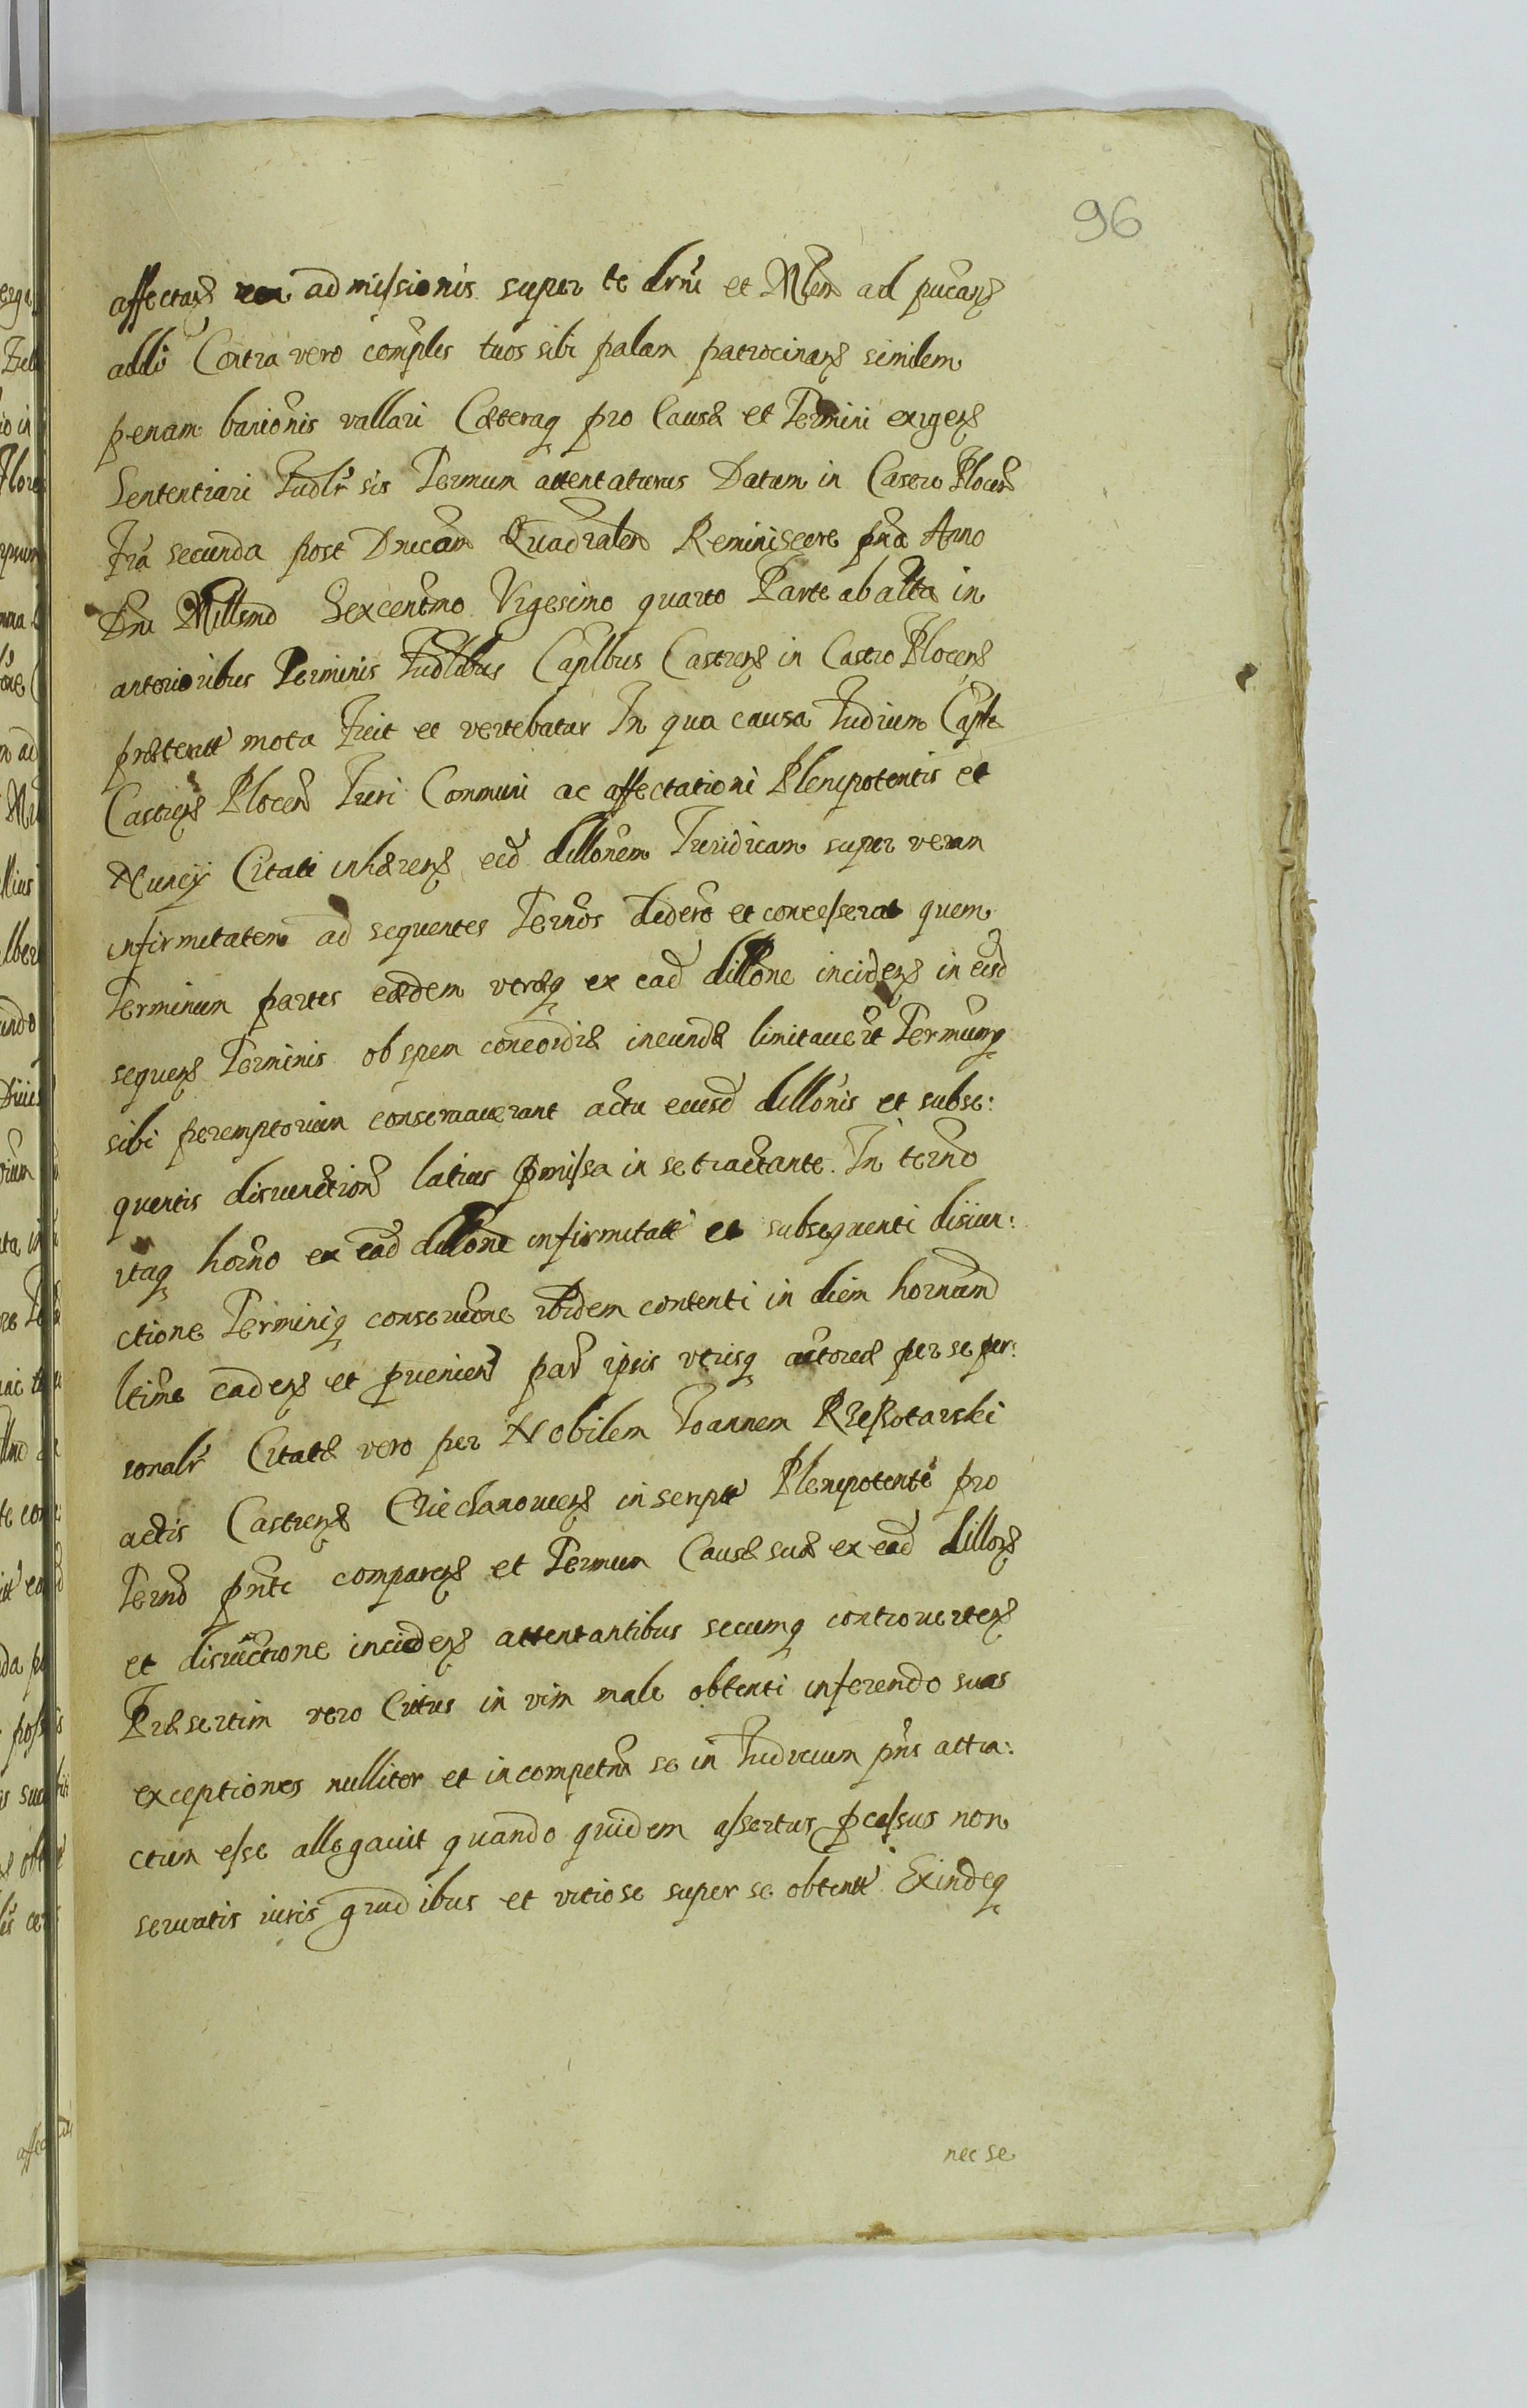 96
affectan̄ admissionis super te drni et ad pucan̄
addi Contra vero complis tuos sibi palam patrocinan̄ similem
penam banionis vallari Cæteraq pro Causa et Termini exigen̄
Sententiari Iudlr̄ sis Termum attentaturus Datum in Castro Plocen̄
Fr̄a secunda post Dnicam Quadralem Reminiscere pn̄a Anno
Dni Millsmo Sexcentmo Vigesimo quarto Parte ab alta in
anterioribus Terminis Iudlibus Caplbus Castren̄ in Castro Plocen̄
præterit mota Fuit et vertebatur In qua causa Iudium Caple
Castren̄ Plocen̄ Iuri Communi ac affectationi Plenipotentis et
Nuncij Citati inhæren̄ eid dillonem Iuridicam super veram
infirmitatem ad sequentes Termos dedert et concesserat quem
Terminum partes eædem vtræq ex ead dillone inciden̄ in eisd
sequen̄ Terminis ob spem concordiæ ineundæ limitauert Termumq
sibi peremptorium conseruauerant actu eiusd dillonis et subse:
quentis disiunction̄ latius pmissa in se tractante. In termo
itaq horno ex ead dillone infirmitatt et subsequenti disiun:
ctione Terminiq conseruone ibidem contenti in diem hornum
ltime caden̄ et puenien̄ par ipsis vtrisq actoreæ per se per:
sonalr̄ Citatæ vero per Nobilem Ioannem
actis Castren̄ Ciechanouien̄ in script Plenipotente pro
Termo pnte comparen̄ et Termum Causæ suæ ex ead dillon̄
et disiuctione inciden̄ attentantibus secumq controuerten̄
Præsertim vero Cittus in vim male obtenti inferendo suas
exceptiones nulliter et incompetnr se in Iudicium pns attra:
ctum esse allegauit quando quidem assertus pcessus non
seruatis iuris grudibus et vitiose super se obtentt Exindeq
nec se